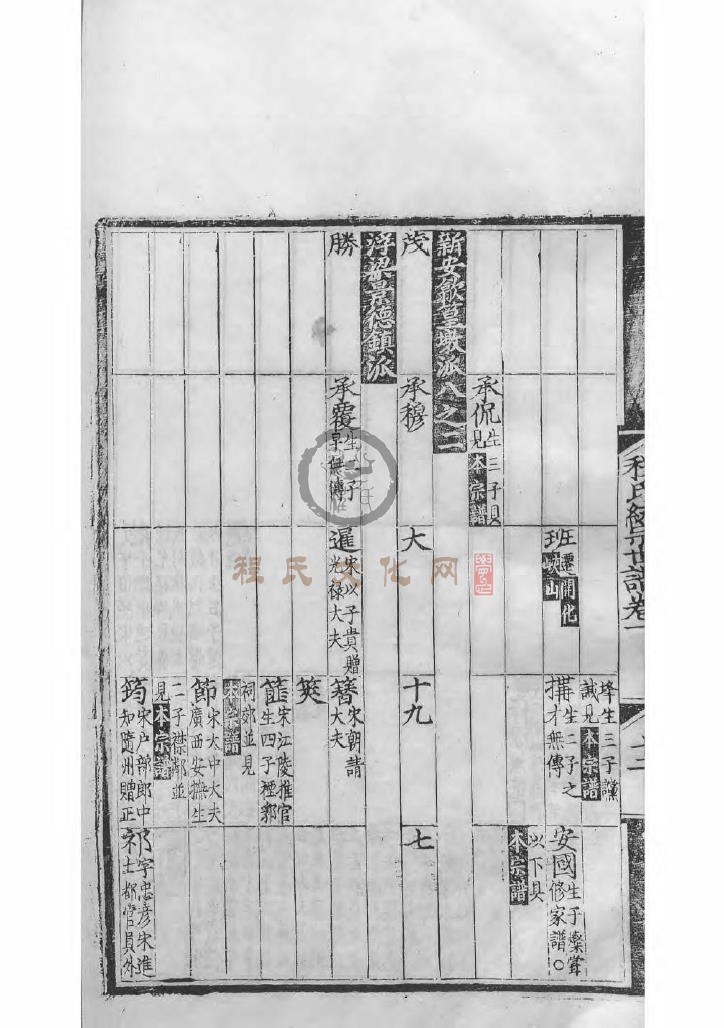 程氏經宗世譜卷一
十二
班遷開化
峽山
烽生三子讜
誠見本宗譜
搆生二子之
才無傳
安國生子燦嘗
修家譜〇
以下具
本宗譜
承侃生三子具
見本宗譜
新安歙篁墩派八之二
茂
承穆
大
十九
七
浮梁景德鎮派
勝
承覆生二子
早無傳
暹宋以子貴贈
光祿大夫
簪宋朝請
大夫
筴
筁宋江陵推官
生四子禋郭
祠郊並見
本宗譜
節宋太中大夫
廣西安撫生
二子襟鄰並
見本宗譜
筠宋戶部郎中
知隨州贈正
祁字忠彥宋進
士都官員外
程氏文化网